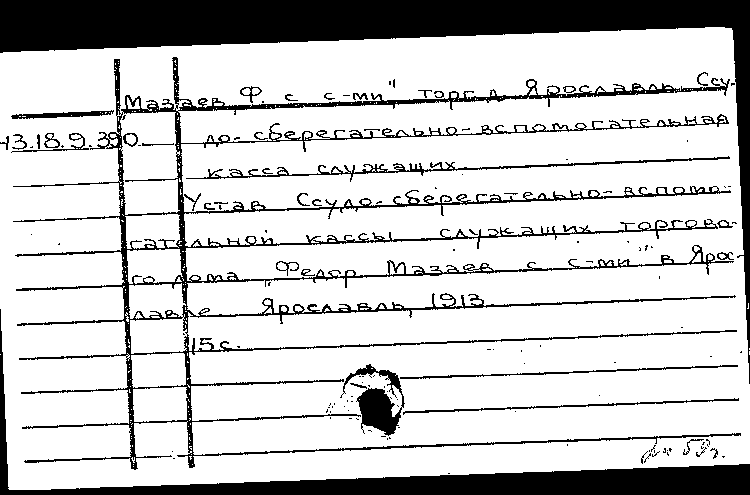 Мазаев, Ф. с с-ми", торг.д. Ярославль. Ссу-
13.18.9.390. до-сберегательно-вспомогательная
касса служащих.
Устав Ссудо-сберегательно-вспомо-
гательной кассы служащих торгово-
го дома „Федор Мазаев с с-ми" в Яро-
славле. Ярославль, 1913.
15с.